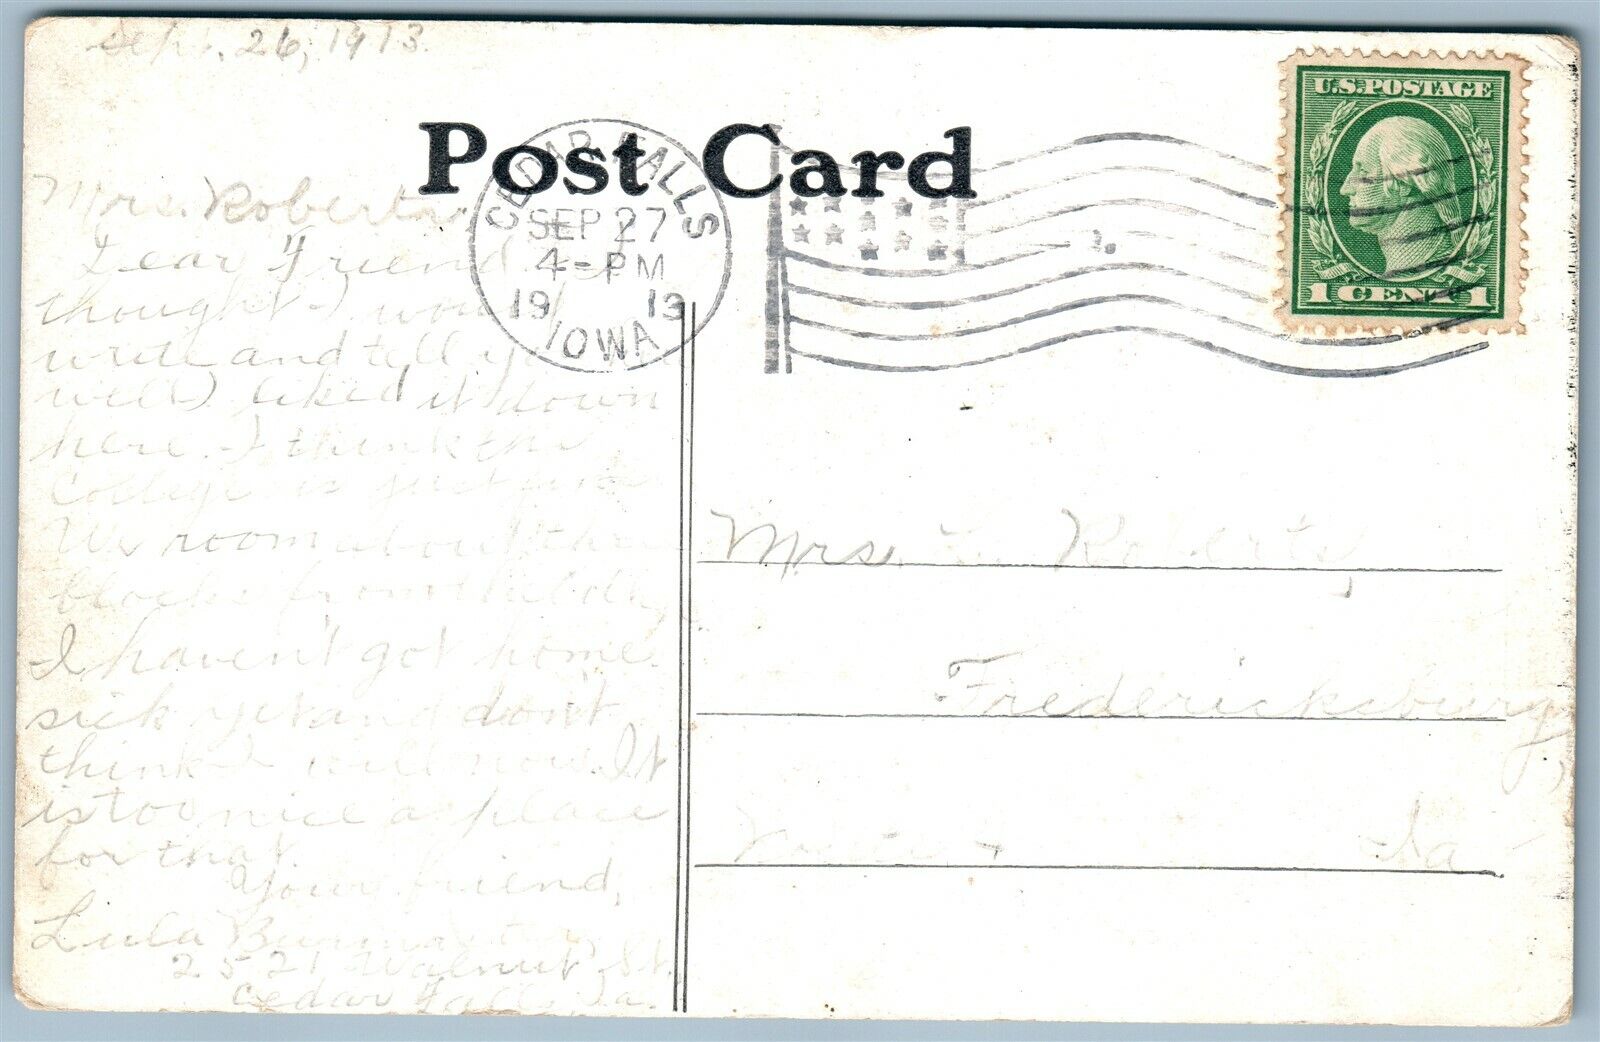 Sept. 26, 1913
Post Card
CEDAR FALLS
SEP 27
4-PM
19 13
IOWA
U.S. POSTAGE
1 CENT 1
Mrs. Roberts,
Dear Friend
thought I would
write and tell you
well I liked it down
here. I think the
College is just fine
We room about three
blocks from the
I haven't got home
sick yet and don't
think I will now. It
is too nice a place
for that.
Your friend,
Lula
2521 Walnut St.
Cedar Falls, Ia.
Mrs. L. Roberts,
Fredericksburg,
Ia